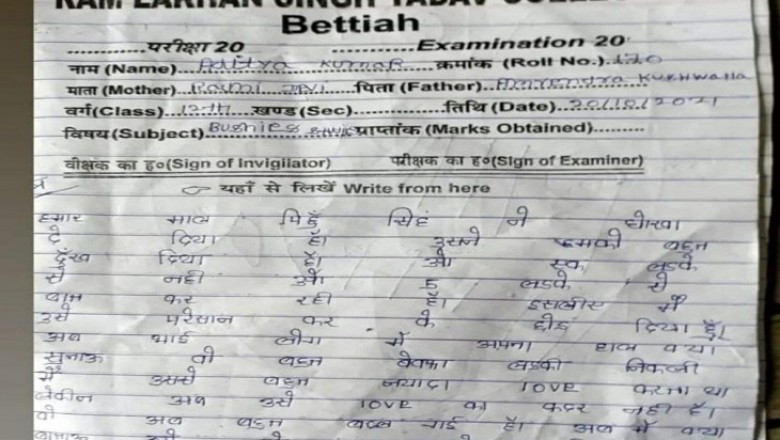 RAM LAKHAN SINGH YADAV COLLEGE
Bettiah
परीक्षा 20 ............Examination 20
नाम (Name)...Aditya Kumar क्रमांक (Roll No.) 120
माता (Mother) पिता (Father) Kushwaha
वर्ग (Class) 12th खण्ड (Sec)............तिथि (Date) 2021
विषय (Subject) प्राप्तांक (Marks Obtained).........
वीक्षक का ह०(Sign of Invigilator) परीक्षक का ह०(Sign of Examiner)
यहाँ से लिखें Write from here
हमार माल सिहं ने धोखा
दे दिया है। उसने हमको बहुत
दिया है। ओ एक लडके
से नही ओ 5 लडके से
बात कर रही है। इसलीए मैं
उसे परेसान कर के छोड दिया हुँ।
अब भाई लोग मैं अपना हाल क्या
सुनाऊ वो बहुत बेवफा लडकी निकली
मैं उससे बहुत जयादा love करता था
लेकीन अब उसे love का कदर नही है।
वो अब बहुत बदल गई है। अब मैं क्या